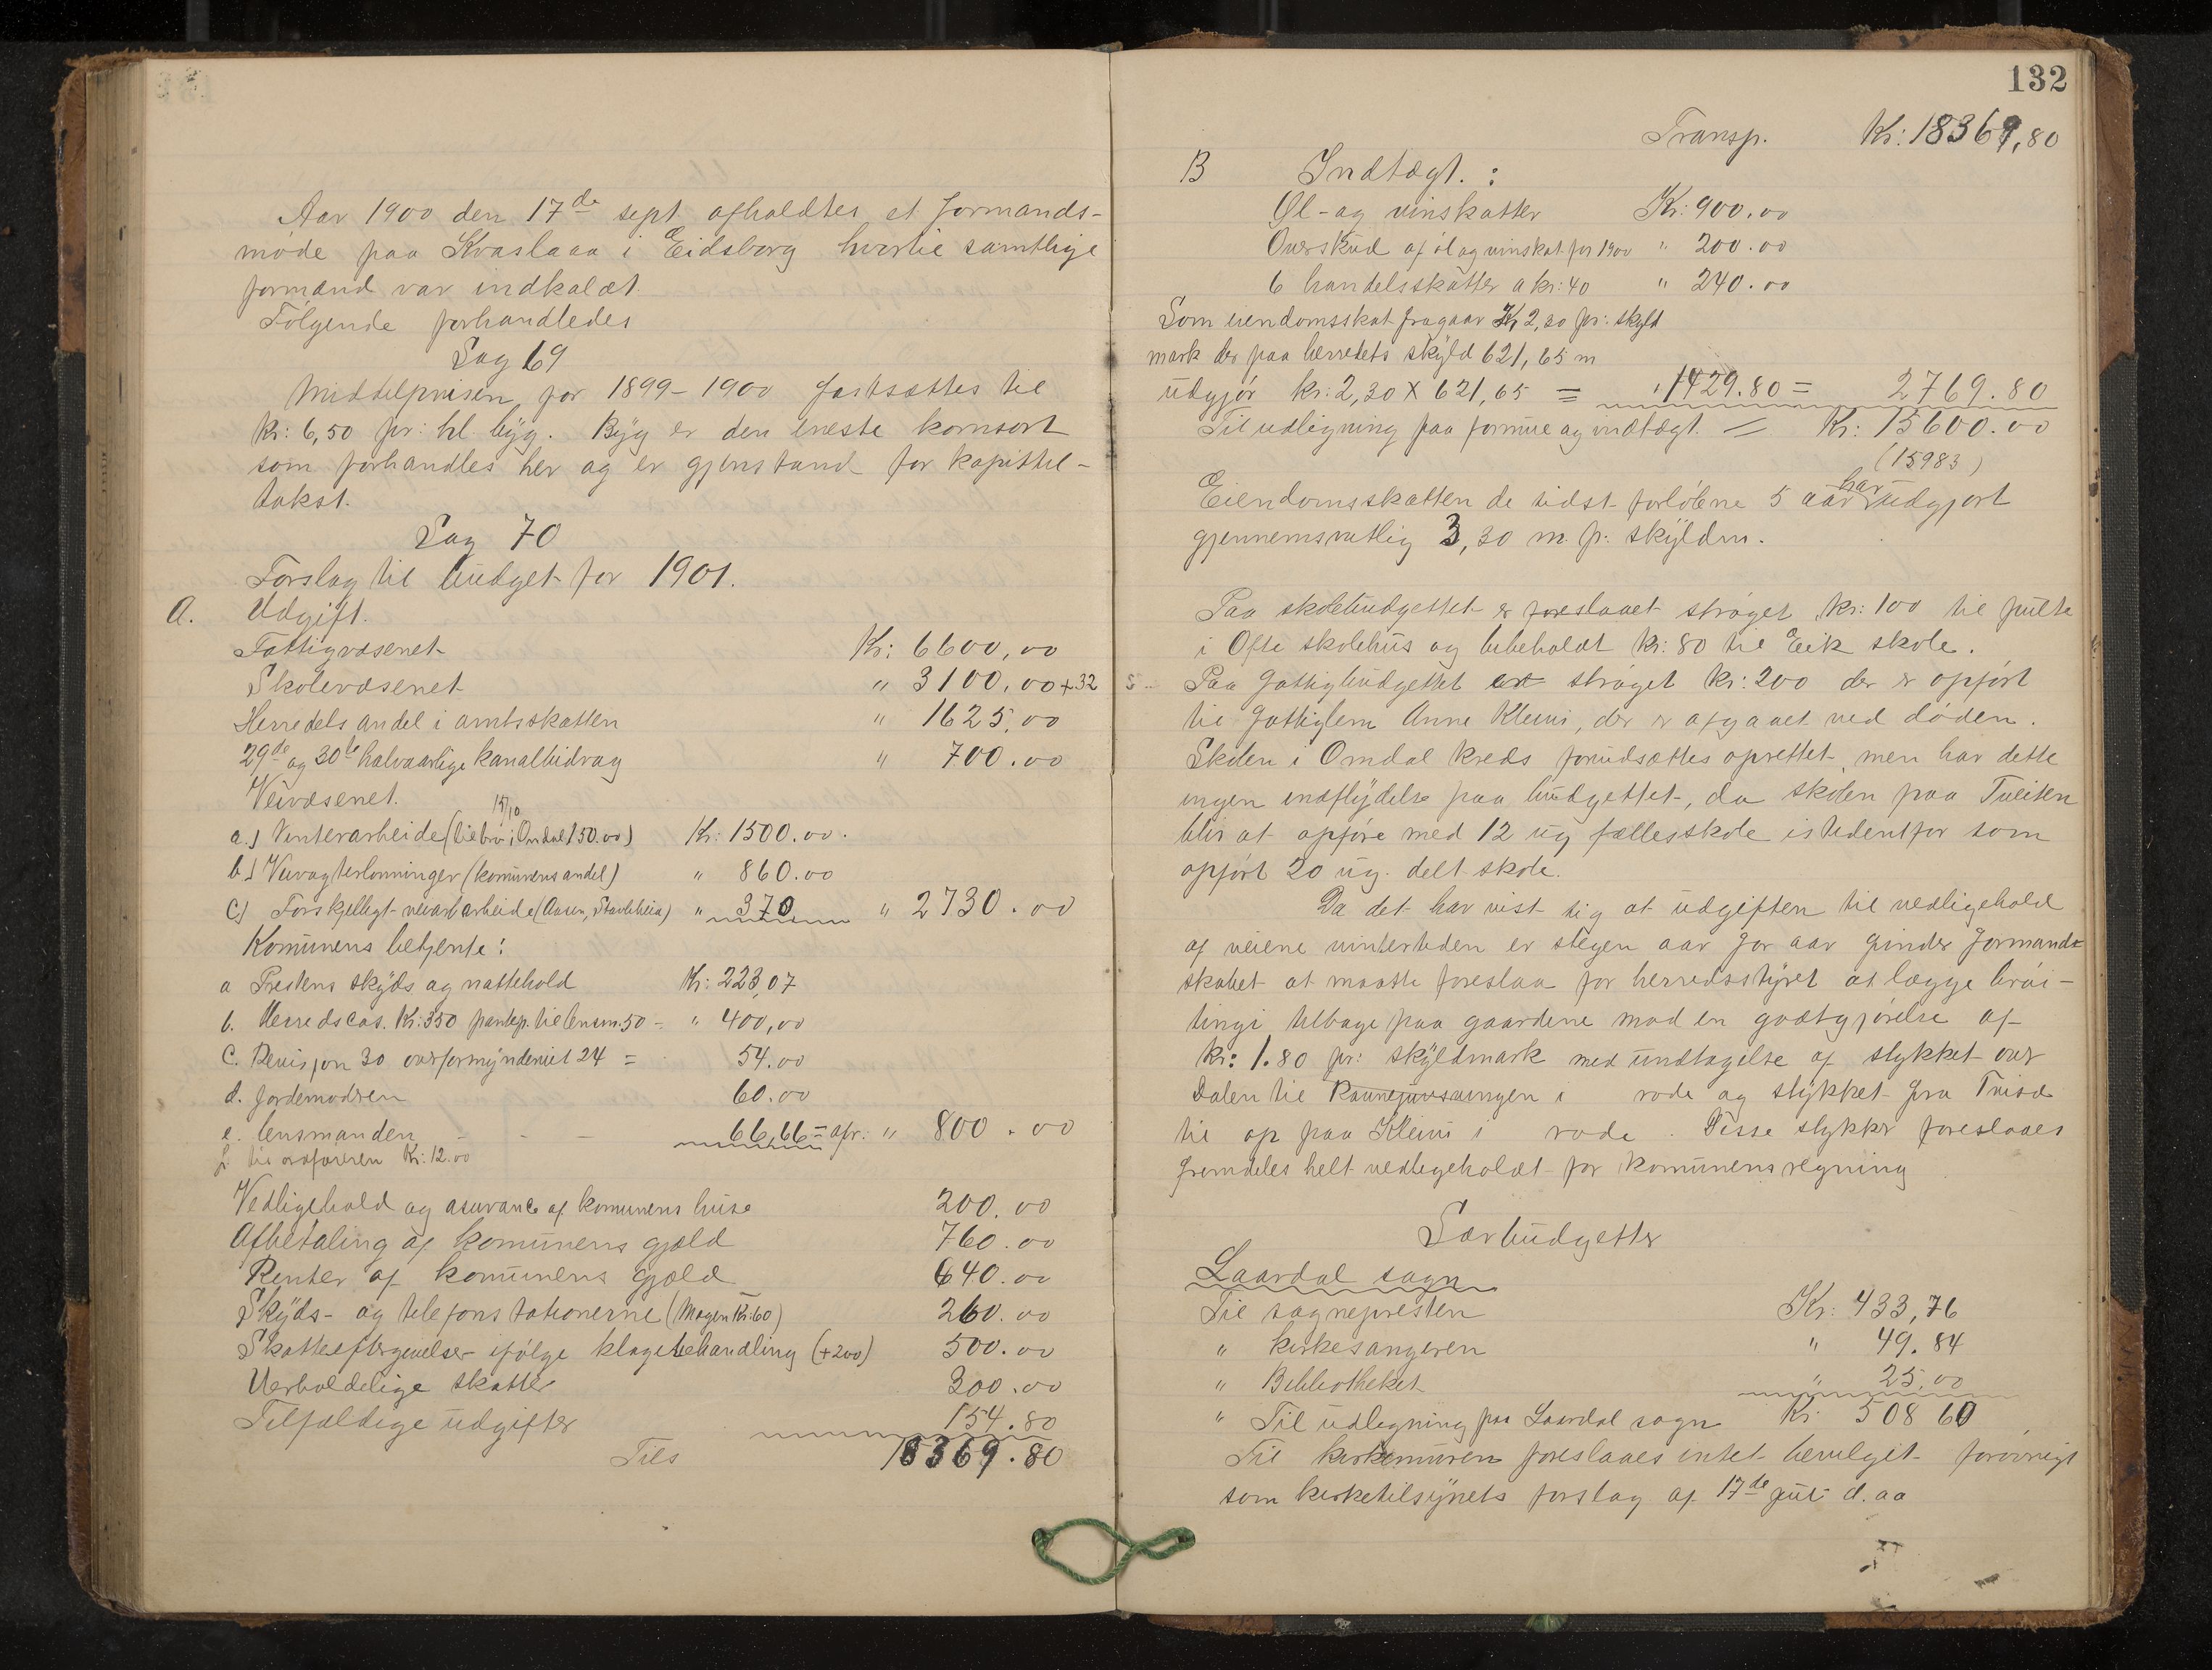 Aar 1900 den 17de sept afholdtes et formands-
møde paa Kvaslaaa i Eidsborg hvortil samtlige
formænd var indkaldt.
Følgende forhandledes
Sag 69
Middelprisen for 1899-1900 fastsættes til
kr: 6,50 pr: hl byg. Byg er den eneste kornsort
som forhandles her og er gjenstand for kapittel-
takst.
Sag 70
Forslag til budget for 1901.
A. Udgift.
Fattigvæsenet Kr: 6600,00
Skolevæsenet " 3100,00+32
Herredets andel i amtsskatten " 1625,00
29de og 30te halvaarlige kanalbidrag " 700.00
Veivæsenet.
a.) Vinterarbeide (til bro i Omdal 150.00) Kr: 1500.00.
b.) Veivogterlønninger (komunens andel) " 860.00
c) Forskjelligt veiarbeide (Aasen, Stavliheia) " 370 " 2730.00
Komunens betjente:
a Prestens skyds og nattehold Kr: 223,07
b. Herredscas. Kr: 350 pantep. til lensm. 50 = " 400,00
c. Revisjon 30 overformynderiet 24 = 54.00
d. Jordemodren 60.00
e. lensmanden - - - 66,66 = afr: " 800.00
f. til ordføreren Kr: 12.00
Vedligehold og asurance af komunens huse 200.00
Afbetaling af komunens gjæld 760.00
Renter af komunens gjæld 640.00
Skyds- og telefonstationerne (Mogen Kr: 60) 260.00
Skatteeftergivelser ifølge klagebehandling (+200) 500.00
Uerholdelige skatter 300.00
Tilfældige udgifter 154.80
Tils 18369.80
132
Transp. Kr: 18369,80
B Indtægt. :
Øl- og vinskatter Kr: 900.00
Overskud af øl og vinskat for 1900 " 200.00
6 handelsskatter a kr: 40 " 240.00
Som eiendomsskat fragaar Kr 2,30 pr: skyld
mark der paa herredets skyld 621,65 m
udgjør kr: 2,30 X 621,65 = " 1429.80 = 2769.80
Til udligning paa formue og indtægt. = Kr: 15600.00
(15983)
Eiendomsskatten de sidst forløbne 5 aar har udgjort
gjennemsnitlig 3,30 m pr: skylden.
Paa skolebudgettet er foreslaaet strøget kr: 100 til pulte
i Ofte skolehus og bibeholdt kr: 80 til Eik skole.
Paa fattigbudgettet er strøget kr: 200 der er opført
til fattiglem Anne Kleivi, der er afgaaet ved døden.
Skolen i Omdal kreds forudsættes oprettet, men har dette
ingen indflydelse paa budgettet, da skolen paa Tveiten
blir at opføre med 12 ug fællesskole istedentfor som
opført 20 ug. delt skole.
Da det har vist sig at udgiften til vedligehold
af veiene vintertiden er stegen aar for aar finder formand-
skabet at maatte foreslaa for herredsstyret at lægge brøi-
tingi tilbage paa gaardene mod en godtgjørelse af
kr: 1.80 pr: skyldmark med undtagelse af stykket over
Dalen til i rode og stykket fra Trisæ
til op paa Kleivi i rode. Disse stykker foreslaaes
fremdeles helt vedligeholdt for komunens regning
Særbudgetter
Laardal sogn
Til sognepresten Kr: 433,76
" kirkesangeren " 49.84
" Bibliotheket " 25.00
" Til udligning paa Laardal sogn Kr: 508 60
Til kirkemuren foreslaaes intet bevilget forøvrigt
som kirketilsynets forslag af 17de juli d. aa